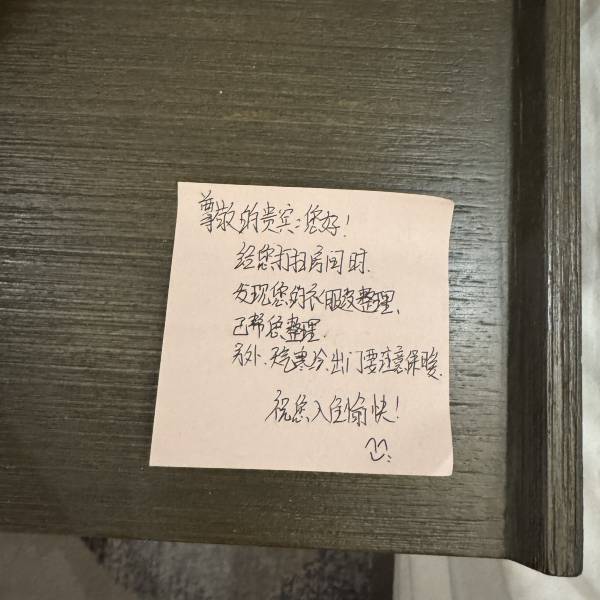 尊敬的贵宾：您好！
给您打扫房间时.
发现您的衣服没整理、
已帮您整理.
另外、天气寒冷、出门要注意保暖.
祝您入住愉快！